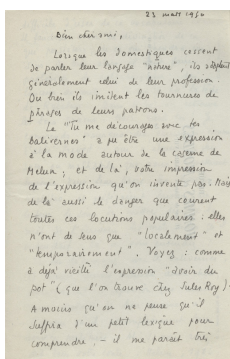 23 mars 1950
Bien cher ami,
Lorsque les domestiques cessent
de parler leur langage "nature", ils adoptent
généralement celui de leur profession.
Ou bien ils imitent les tournures de
phrases de leurs patrons.
Le "Tu me décourages avec tes
Balivernes" a pu être une expression
à la mode autour de la caserne de
Melun ; et de là, votre impression
de l'expression qu'on invente pas. Mais
de là aussi le danger que courent
toutes ces locutions populaires : elles
n'ont de sens que "localement" et
"temporairement". Voyez : comme
a déjà vieilli l'expression "avoir du
pot" (que l'on trouve chez Jules Roy).
A moins qu'on ne pense qu'il
suffira d'un petit lexique pour
comprendre, - il me paraît très